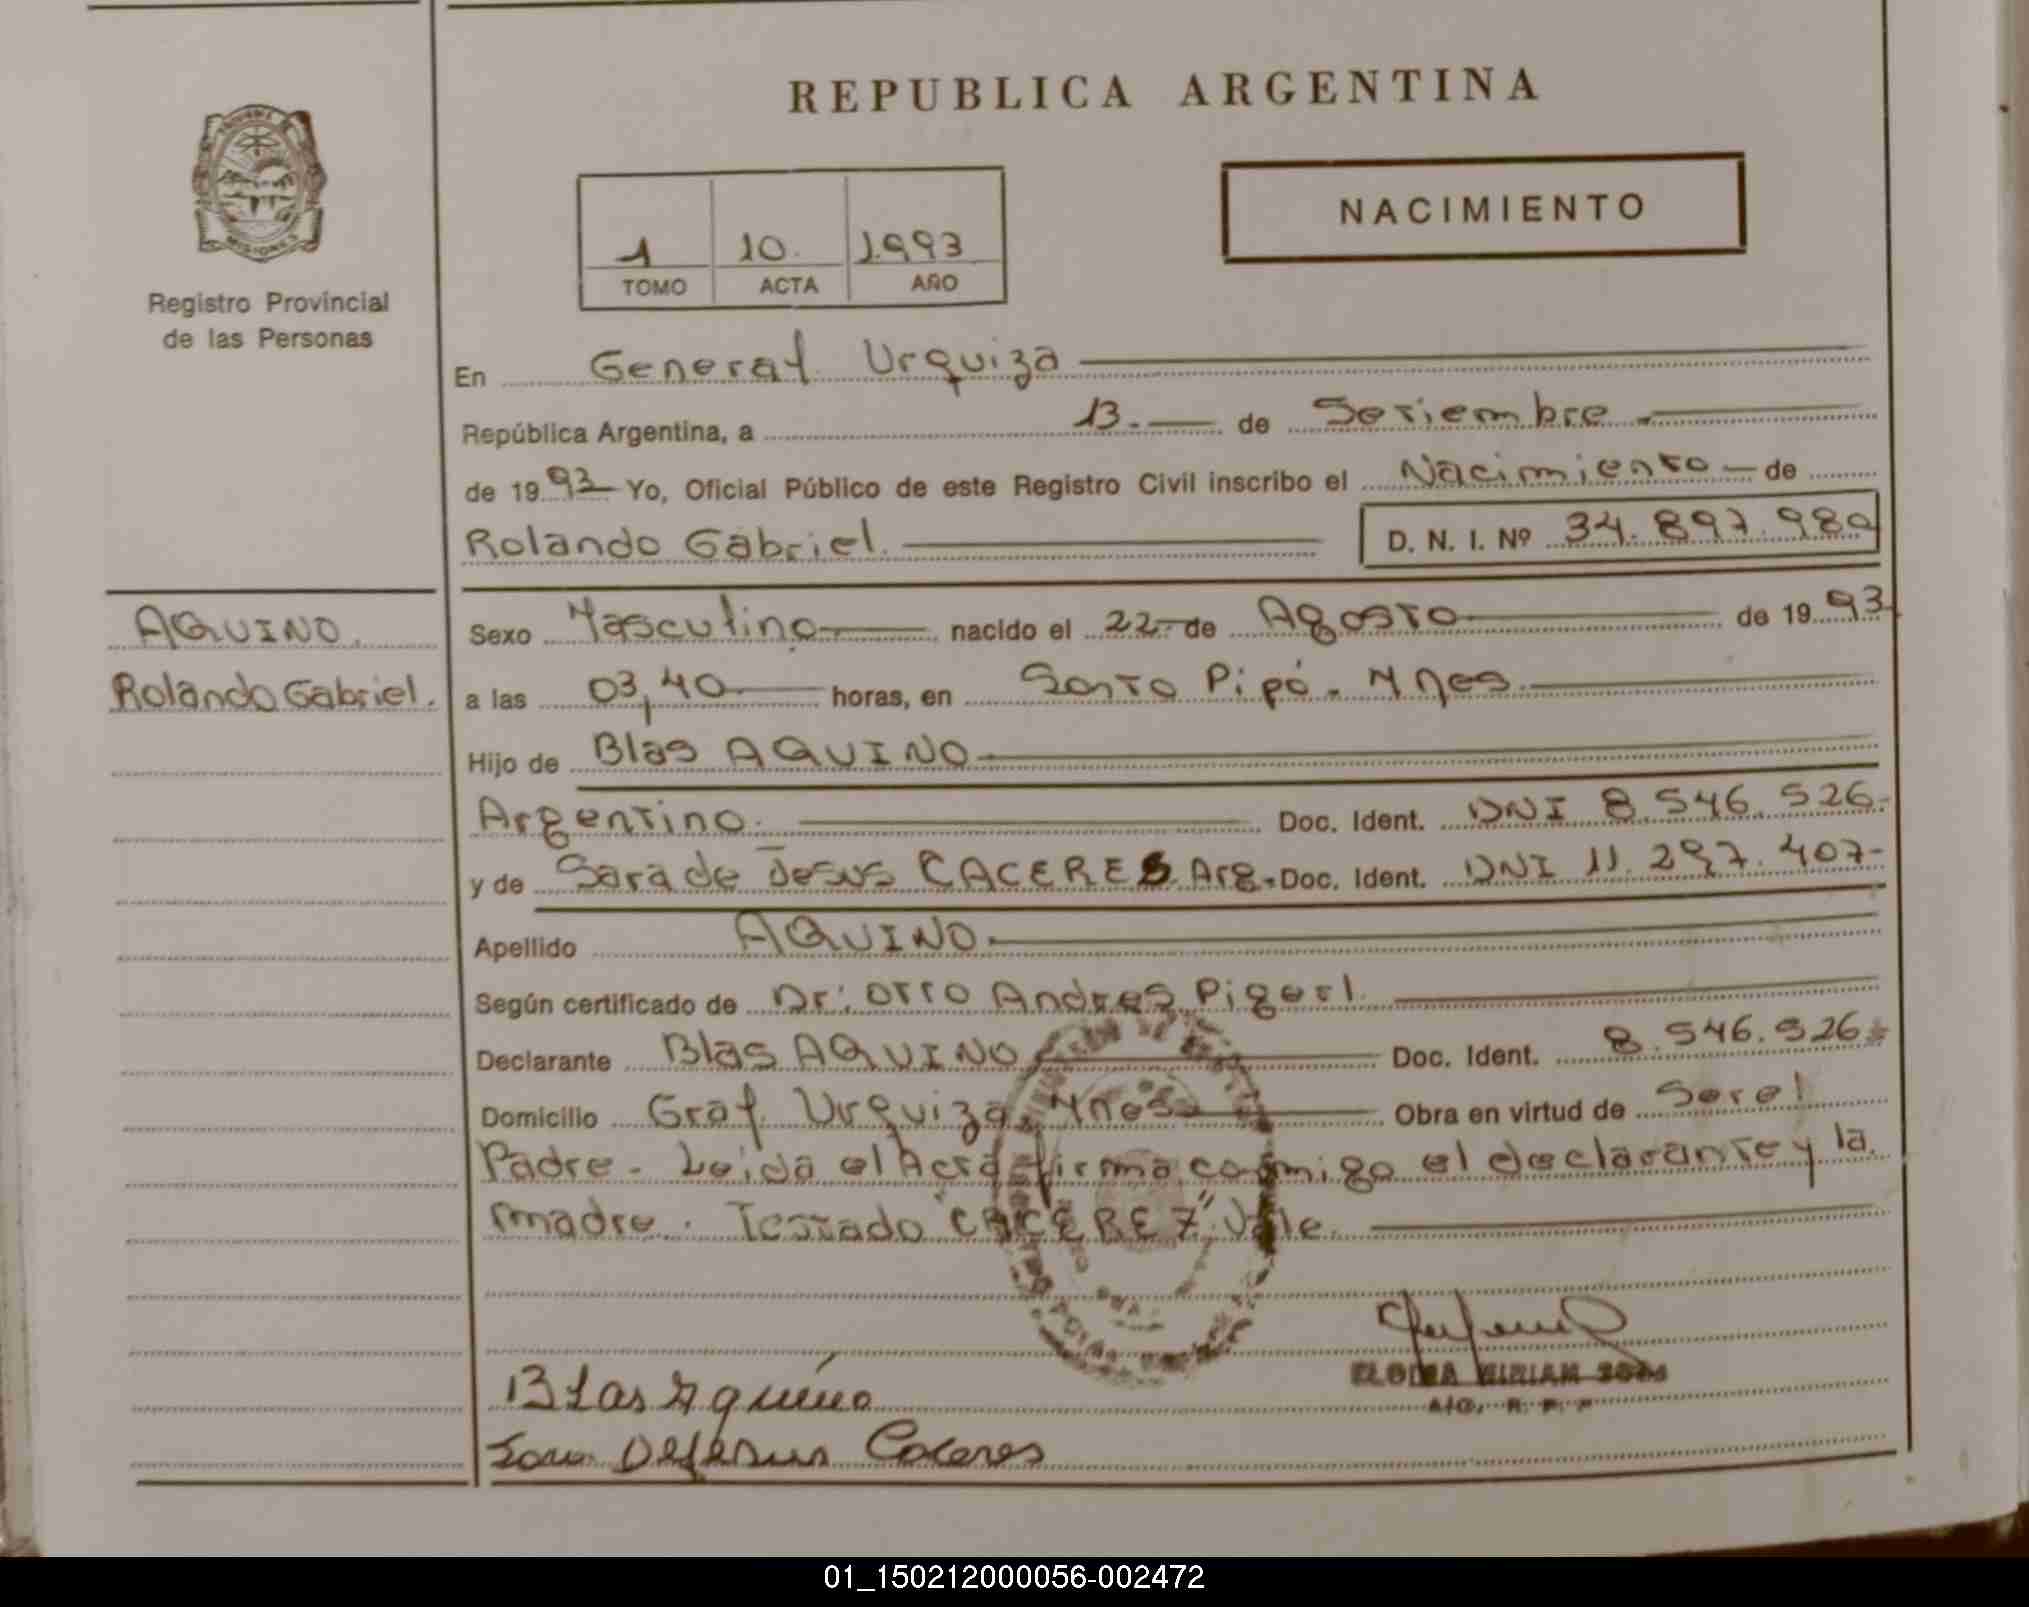 REPUBLICA ARGENTINA
PROVINCIA DE
MISIONES
Registro Provincial
de las Personas
1 10. 1.993
TOMO ACTA AÑO
NACIMIENTO
En General Urquiza
República Argentina, a 13.- de Setiembre.-
de 1993 Yo, Oficial Público de este Registro Civil inscribo el Nacimiento - de
Rolando Gabriel. D. N. I. Nº 34.897.980
AQUINO.
Rolando Gabriel.
Sexo Masculino nacido el 22 de Agosto de 1993
a las 03,40 horas, en Santo Pipó - Mnes.
Hijo de Blas AQUINO
Argentino. Doc. Ident. DNI 8.546.526.-
y de Sara de Jesus CACERES Arg. Doc. Ident. DNI 11.297.407-
Apellido AQUINO.
Según certificado de Dr: Otto Andres
Declarante Blas AQUINO Doc. Ident. 8.546.526
Domicilio Gral. Urquiza Mnes. Obra en virtud de Ser el
Padre - Leida el Acta firma conmigo el declarante y la
madre. Testado "CACEREZ" Vale.
Blas Aquino
Sara DeJesus Caceres
ELODIA MIRIAM
01_150212000056-002472